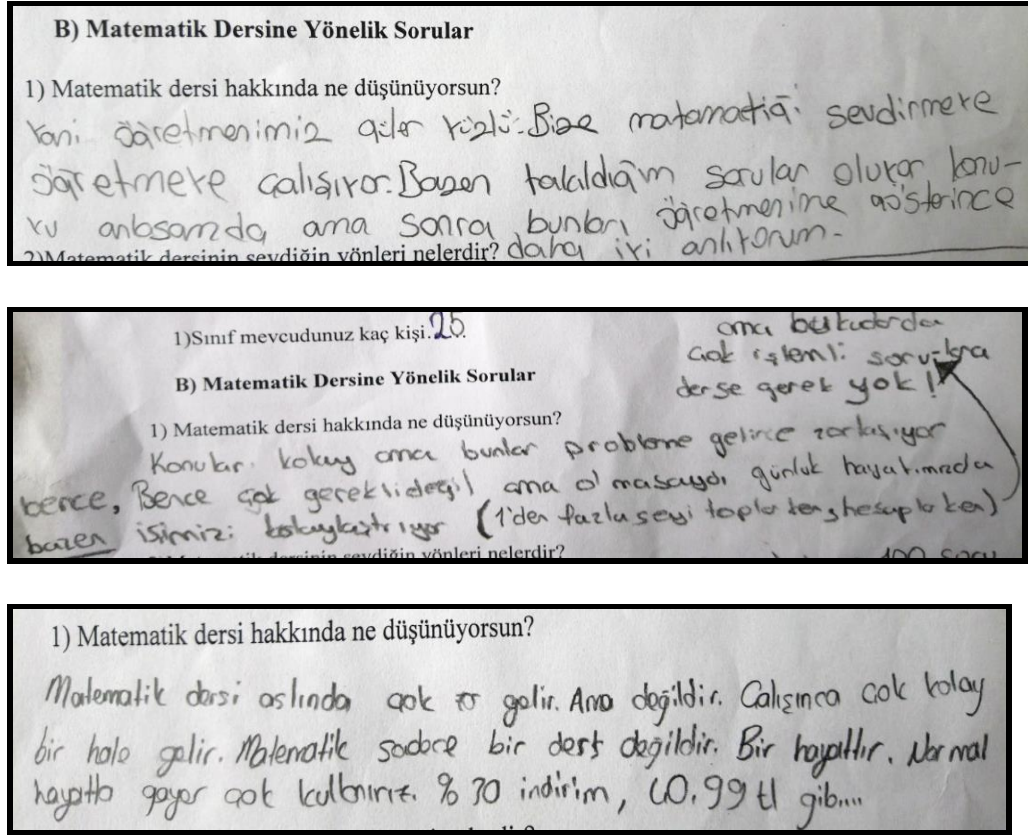 B) Matematik Dersine Yönelik Sorular
1) Matematik dersi hakkında ne düşünüyorsun?
Yani öğretmenimiz güler yüzlü. Bize matamatiği sevdirmeye
öğretmeye çalışıyor. Bazen takıldığım sorular oluyor konu-
yu anlasamda ama sonra bunları öğretmenime gösterince
daha iyi anlıyorum.
2)Matematik dersinin sevdiğin yönleri nelerdir?
1)Sınıf mevcudunuz kaç kişi.25.
B) Matematik Dersine Yönelik Sorular
1) Matematik dersi hakkında ne düşünüyorsun?
Konular kolay ama bunlar probleme gelince zorlaşıyor
bence, Bence çok gerekli değil ama olmasaydı günlük hayatımızda
bazen işimizi kolaylaştırıyor (1'den fazla şeyi toplarken, hesaplarken)
ama bu kadarda
çok işlemli
derse gerek yok!
sevdiğin yönleri nelerdir?
1) Matematik dersi hakkında ne düşünüyorsun?
Matematik dersi aslında çok zor gelir. Ama değildir. Çalışınca çok kolay
bir hale gelir. Matematik sadece bir ders değildir. Bir hayattır. Normal
hayatta gayet çok kullanırız. % 30 indirim, 60.99 tl gibi...